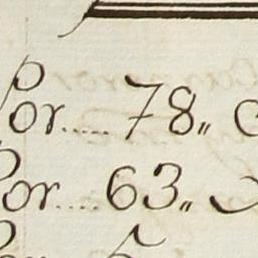 Por..... 78,,
Por.... 63,,